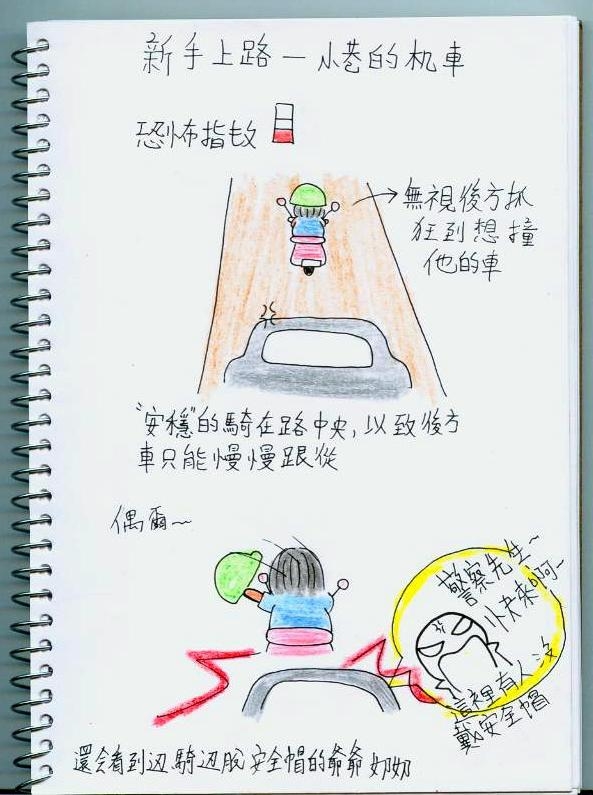 新手上路—小巷的机車
恐怖指数
無視後方抓
狂到想撞
他的車
"安穩"的騎在路中央,以致後方
車只能慢慢跟從
偶爾~
警察先生~
快來啊~
這裡有人沒
戴安全帽
還会看到边騎边脫安全帽的爺爺奶奶